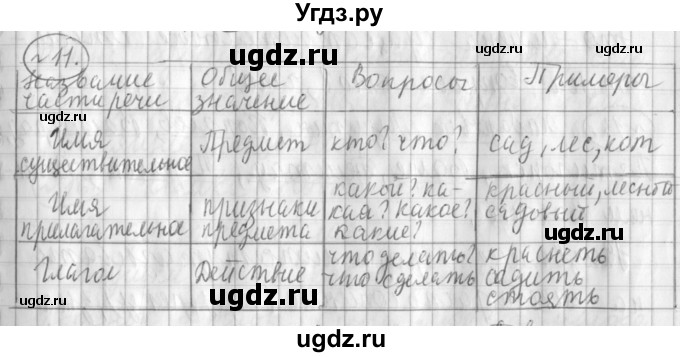 Угдз.ру
ugdz.ru ugdz.ru
№ 11.
Название части речи | Общее значение | Вопросы | Примеры
ugdz.ru ugdz.ru
Имя существительное | Предмет | кто? что? | сад, лес, кот
ugdz.ru ugdz.ru
Имя прилагательное | признаки предмета | какой? какая? какое? какие? | красный, лесной садовый
ugdz.ru ugdz.ru
Глагол | Действие | что делать? что сделать | краснеть садить стоять
ugdz.ru ugdz.ru
ugdz.ru